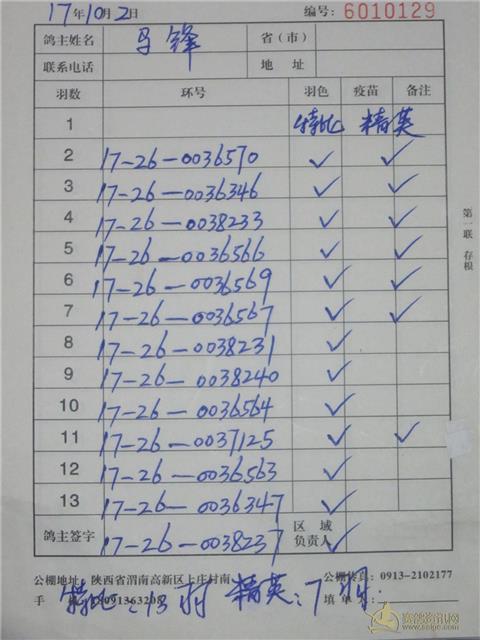 17年10月2日 编号：6010129
鸽主姓名 马锋 省（市）
联系电话 地 址
羽数 环号 羽色 疫苗 备注
1 特比 精英
2 17-26-0036570 ✓ ✓
3 17-26-0036346 ✓ ✓
4 17-26-0038233 ✓ ✓
5 17-26-0036566 ✓ ✓
6 17-26-0036569 ✓ ✓
7 17-26-0036567 ✓ ✓
8 17-26-0038231 ✓
9 17-26-0038240 ✓
10 17-26-0036564 ✓
11 17-26-0037125 ✓ ✓
12 17-26-0036563 ✓
13 17-26-0036347 ✓
鸽主签字 17-26-0038237 区域负责人 ✓
第一联 存根
公棚地址：陕西省渭南高新区上庄村南 公棚传真：0913-2102177
手 机 18091363208 填单人：
特比：13羽 精英：7羽